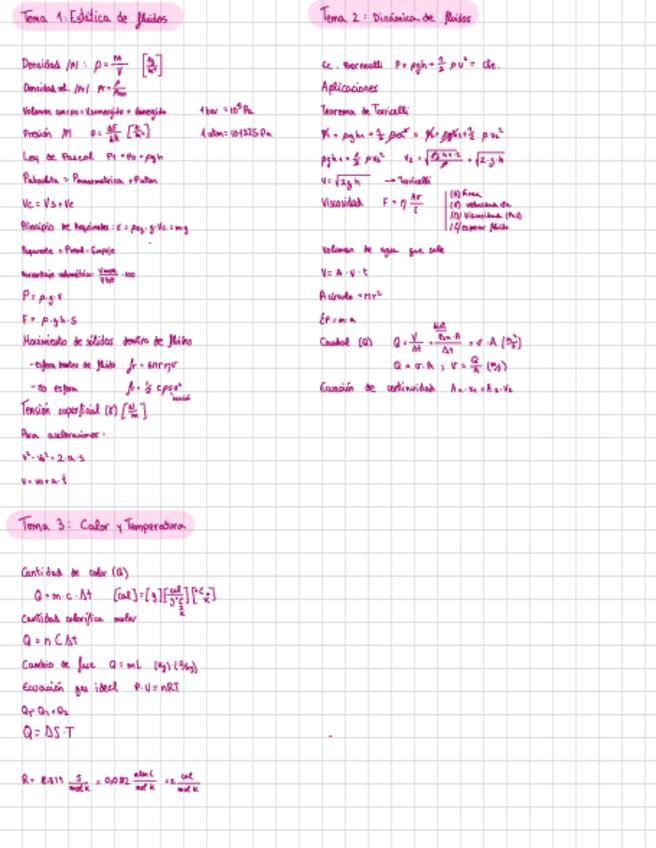 Tema 1: Estática de fluidos
Densidad /ρ/ : ρ = M/V [kg/m³]
Densidad rel. /ρr/ ρr =
Volumen cuerpo = Vsumergido + Vemergido 1 bar = 10⁵ Pa
Presión /P/ P = [N/m²] 1 atm = 101325 Pa
Ley de Pascal Pt = Po + ρgh
Pabsoluta = Pmanométrica + Patm
Vc = Vs + Ve
Principio de Arquímedes: E = ρ · g · Vc = m·g
Paparente = Preal - Empuje
Porcentaje volumétrico: · 100
P = ρ·g·V
F = ρ·g·h·S
Movimiento de sólidos dentro de fluido
- esfera dentro de fluido fr = 6πrηv
- no esfera fr = ½ cρsv²
Tensión superficial (γ) [N/m]
Para aceleraciones:
v² - v₀² = 2·a·s
v = v₀ + a·t
Tema 2: Dinámica de fluidos
Ec. Bernoulli P + ρgh + ½ ρv² = cte.
Aplicaciones
Teorema de Torricelli
v = √2gh → Torricelli
Viscosidad F = η
(A) Área
Volumen de agua que sale
V = A · v · t
A círculo = πr²
ΣF = m·a
Caudal (Q) Q = V/Δt = Δx·A/Δt = v · A (m³/s)
Q = v·A ; v = Q/A (m/s)
Ecuación de continuidad A₁·v₁ = A₂·v₂
Tema 3: Calor y Temperatura
Cantidad de calor (Q)
Q = m·c·Δt [cal] = [g]
Cantidad calorífica molar
Q = n C Δt
Cambio de fase Q = mL (kg)·(J/kg)
Ecuación gas ideal P·V = nRT
QT = Q₁ + Q₂
Q = ΔS·T
R = 8.314 J/mol K = 0,082 atm L/mol K = 2 cal/mol K